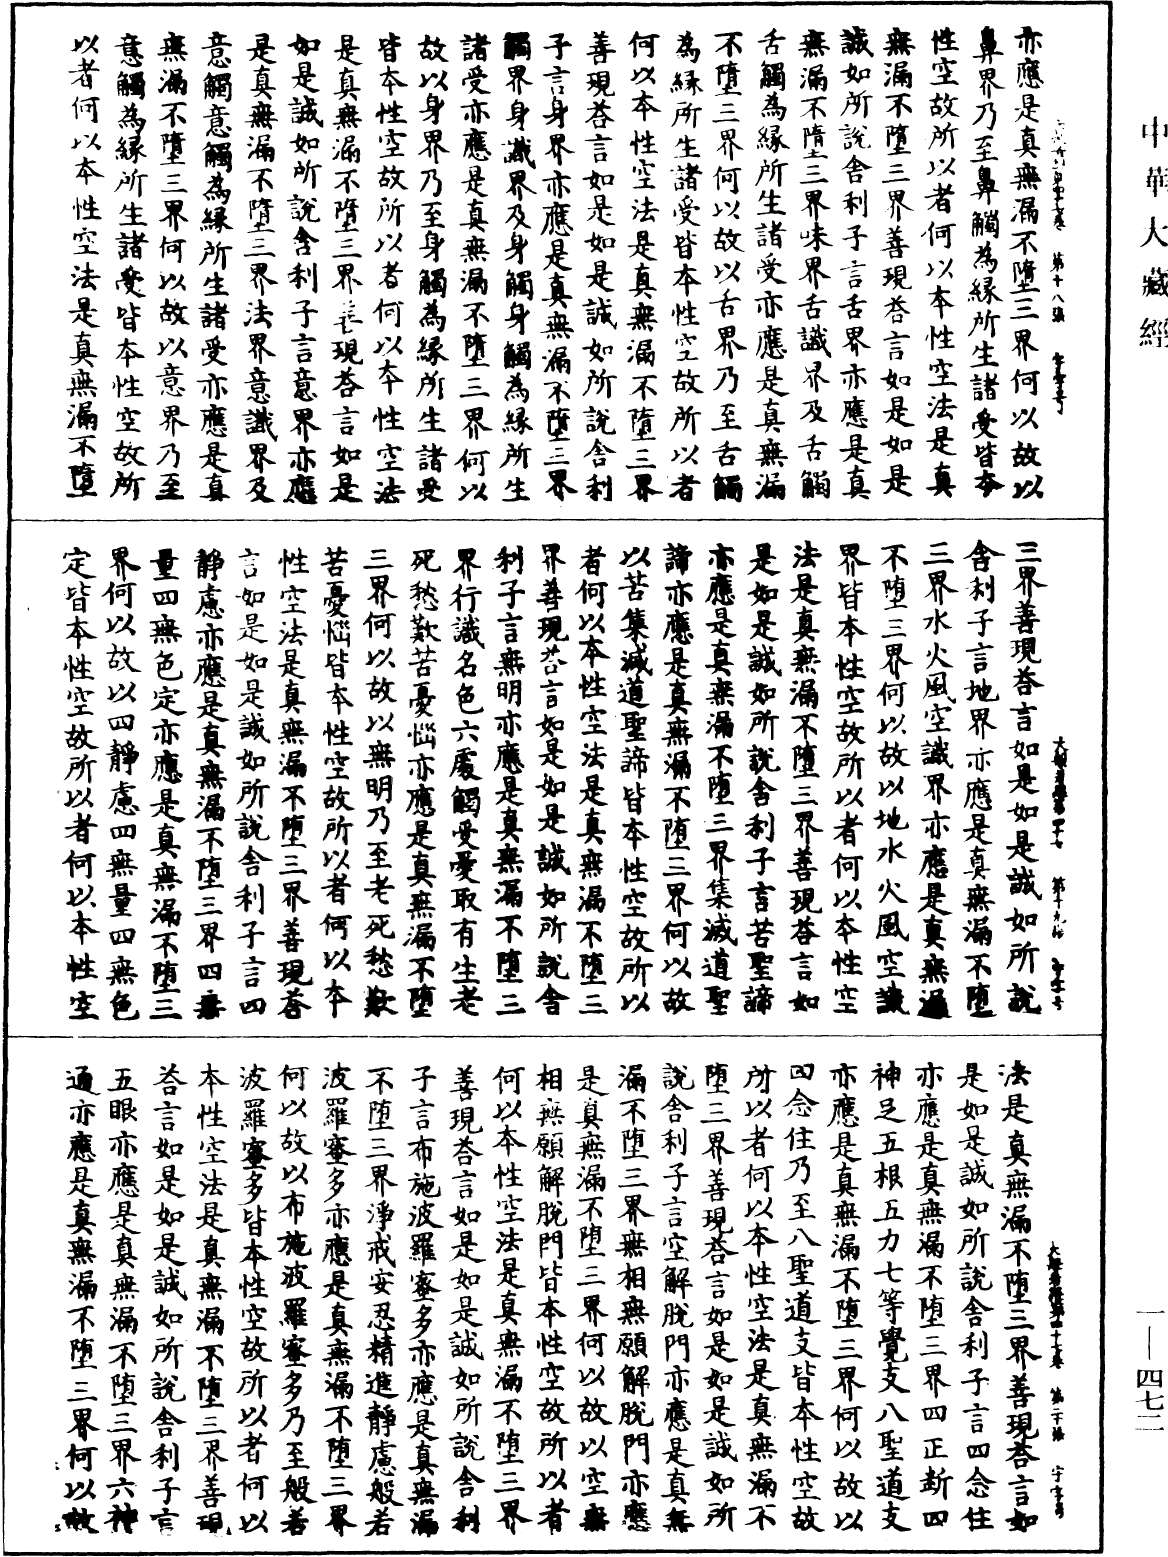 中華大藏經
亦應是真無漏不墮三界何以故以
鼻界乃至鼻觸為緣所生諸受皆本
性空故所以者何以本性空法是真
無漏不墮三界善現荅言如是如是
誠如所說舍利子言舌界亦應是真
無漏不墮三界味界舌識界及舌觸
舌觸為緣所生諸受亦應是真無漏
不墮三界何以故以舌界乃至舌觸
為緣所生諸受皆本性空故所以者
何以本性空法是真無漏不墮三界
善現荅言如是如是誠如所說舍利
子言身界亦應是真無漏不墮三界
觸界身識界及身觸身觸為緣所生
諸受亦應是真無漏不墮三界何以
故以身界乃至身觸為緣所生諸受
皆本性空故所以者何以本性空法
是真無漏不墮三界善現荅言如是
如是誠如所說舍利子言意界亦應
是真無漏不墮三界法界意識界及
意觸意觸為緣所生諸受亦應是真
無漏不墮三界何以故以意界乃至
意觸為緣所生諸受皆本性空故所
以者何以本性空法是真無漏不墮
第十八張
三界善現荅言如是如是誠如所說
舍利子言地界亦應是真無漏不墮
三界水火風空識界亦應是真無漏
不墮三界何以故以地水火風空識
界皆本性空故所以者何以本性空
法是真無漏不墮三界善現荅言如
是如是誠如所說舍利子言苦聖諦
亦應是真無漏不墮三界集滅道聖
諦亦應是真無漏不墮三界何以故
以苦集滅道聖諦皆本性空故所以
者何以本性空法是真無漏不墮三
界善現荅言如是如是誠如所說舍
利子言無明亦應是真無漏不墮三
界行識名色六處觸受愛取有生老
死愁歎苦憂惱亦應是真無漏不墮
三界何以故以無明乃至老死愁歎
苦憂惱皆本性空故所以者何以本
性空法是真無漏不墮三界善現荅
言如是如是誠如所說舍利子言四
靜慮亦應是真無漏不墮三界四無
量四無色定亦應是真無漏不墮三
界何以故以四靜慮四無量四無色
定皆本性空故所以者何以本性空
法是真無漏不墮三界善現荅言如
是如是誠如所說舍利子言四念住
亦應是真無漏不墮三界四正斷四
神足五根五力七等覺支八聖道支
亦應是真無漏不墮三界何以故以
四念住乃至八聖道支皆本性空故
所以者何以本性空法是真無漏不
墮三界善現荅言如是如是誠如所
說舍利子言空解脫門亦應是真無
漏不墮三界無相無願解脫門亦應
是真無漏不墮三界何以故以空無
相無願解脫門皆本性空故所以者
何以本性空法是真無漏不墮三界
善現荅言如是如是誠如所說舍利
子言布施波羅蜜多亦應是真無漏
不墮三界淨戒安忍精進靜慮般若
波羅蜜多亦應是真無漏不墮三界
何以故以布施波羅蜜多乃至般若
波羅蜜多皆本性空故所以者何以
本性空法是真無漏不墮三界善現
荅言如是如是誠如所說舍利子言
五眼亦應是真無漏不墮三界六神
通亦應是真無漏不墮三界何以故
一—四七二